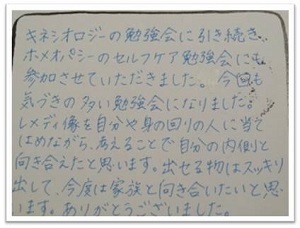 キネシオロジーの勉強会に引き続き
ホメオパシーのセルフケア勉強会にも
参加させていただきました。今回も
気づきの多い勉強会になりました。
レメディ像を自分や身の回りの人に当て
はめながら、考えることで自分の内側と
向き合えたと思います。出せる物はスッキリ
出して、今度は家族と向き合いたいと思
います。ありがとうございました。